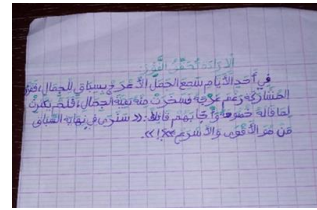 في أحد الأيام سمع الجمل الأعرج بسباق للجمال، فقرر
المشاركة رغم عرجه فسخرت منه بقية الجمال، فلم يكترث
لما قاله خصومه وأجابهم قائلا: << سنرى في نهاية السباق
من هو الأقوى والأسرع >>!.